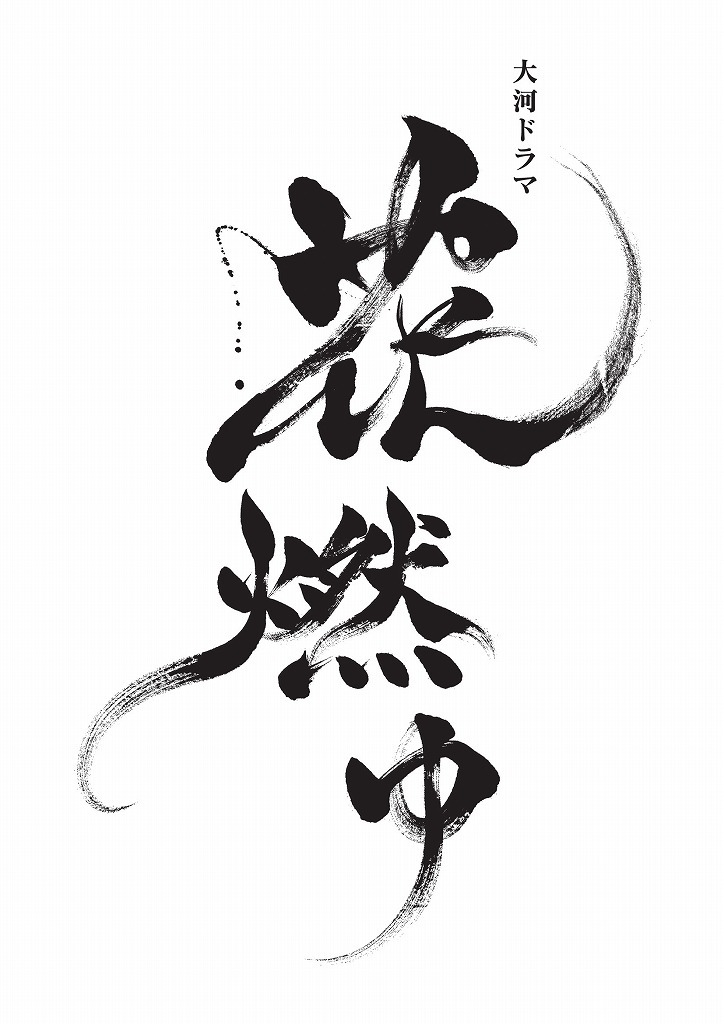 大河ドラマ
花燃ゆ